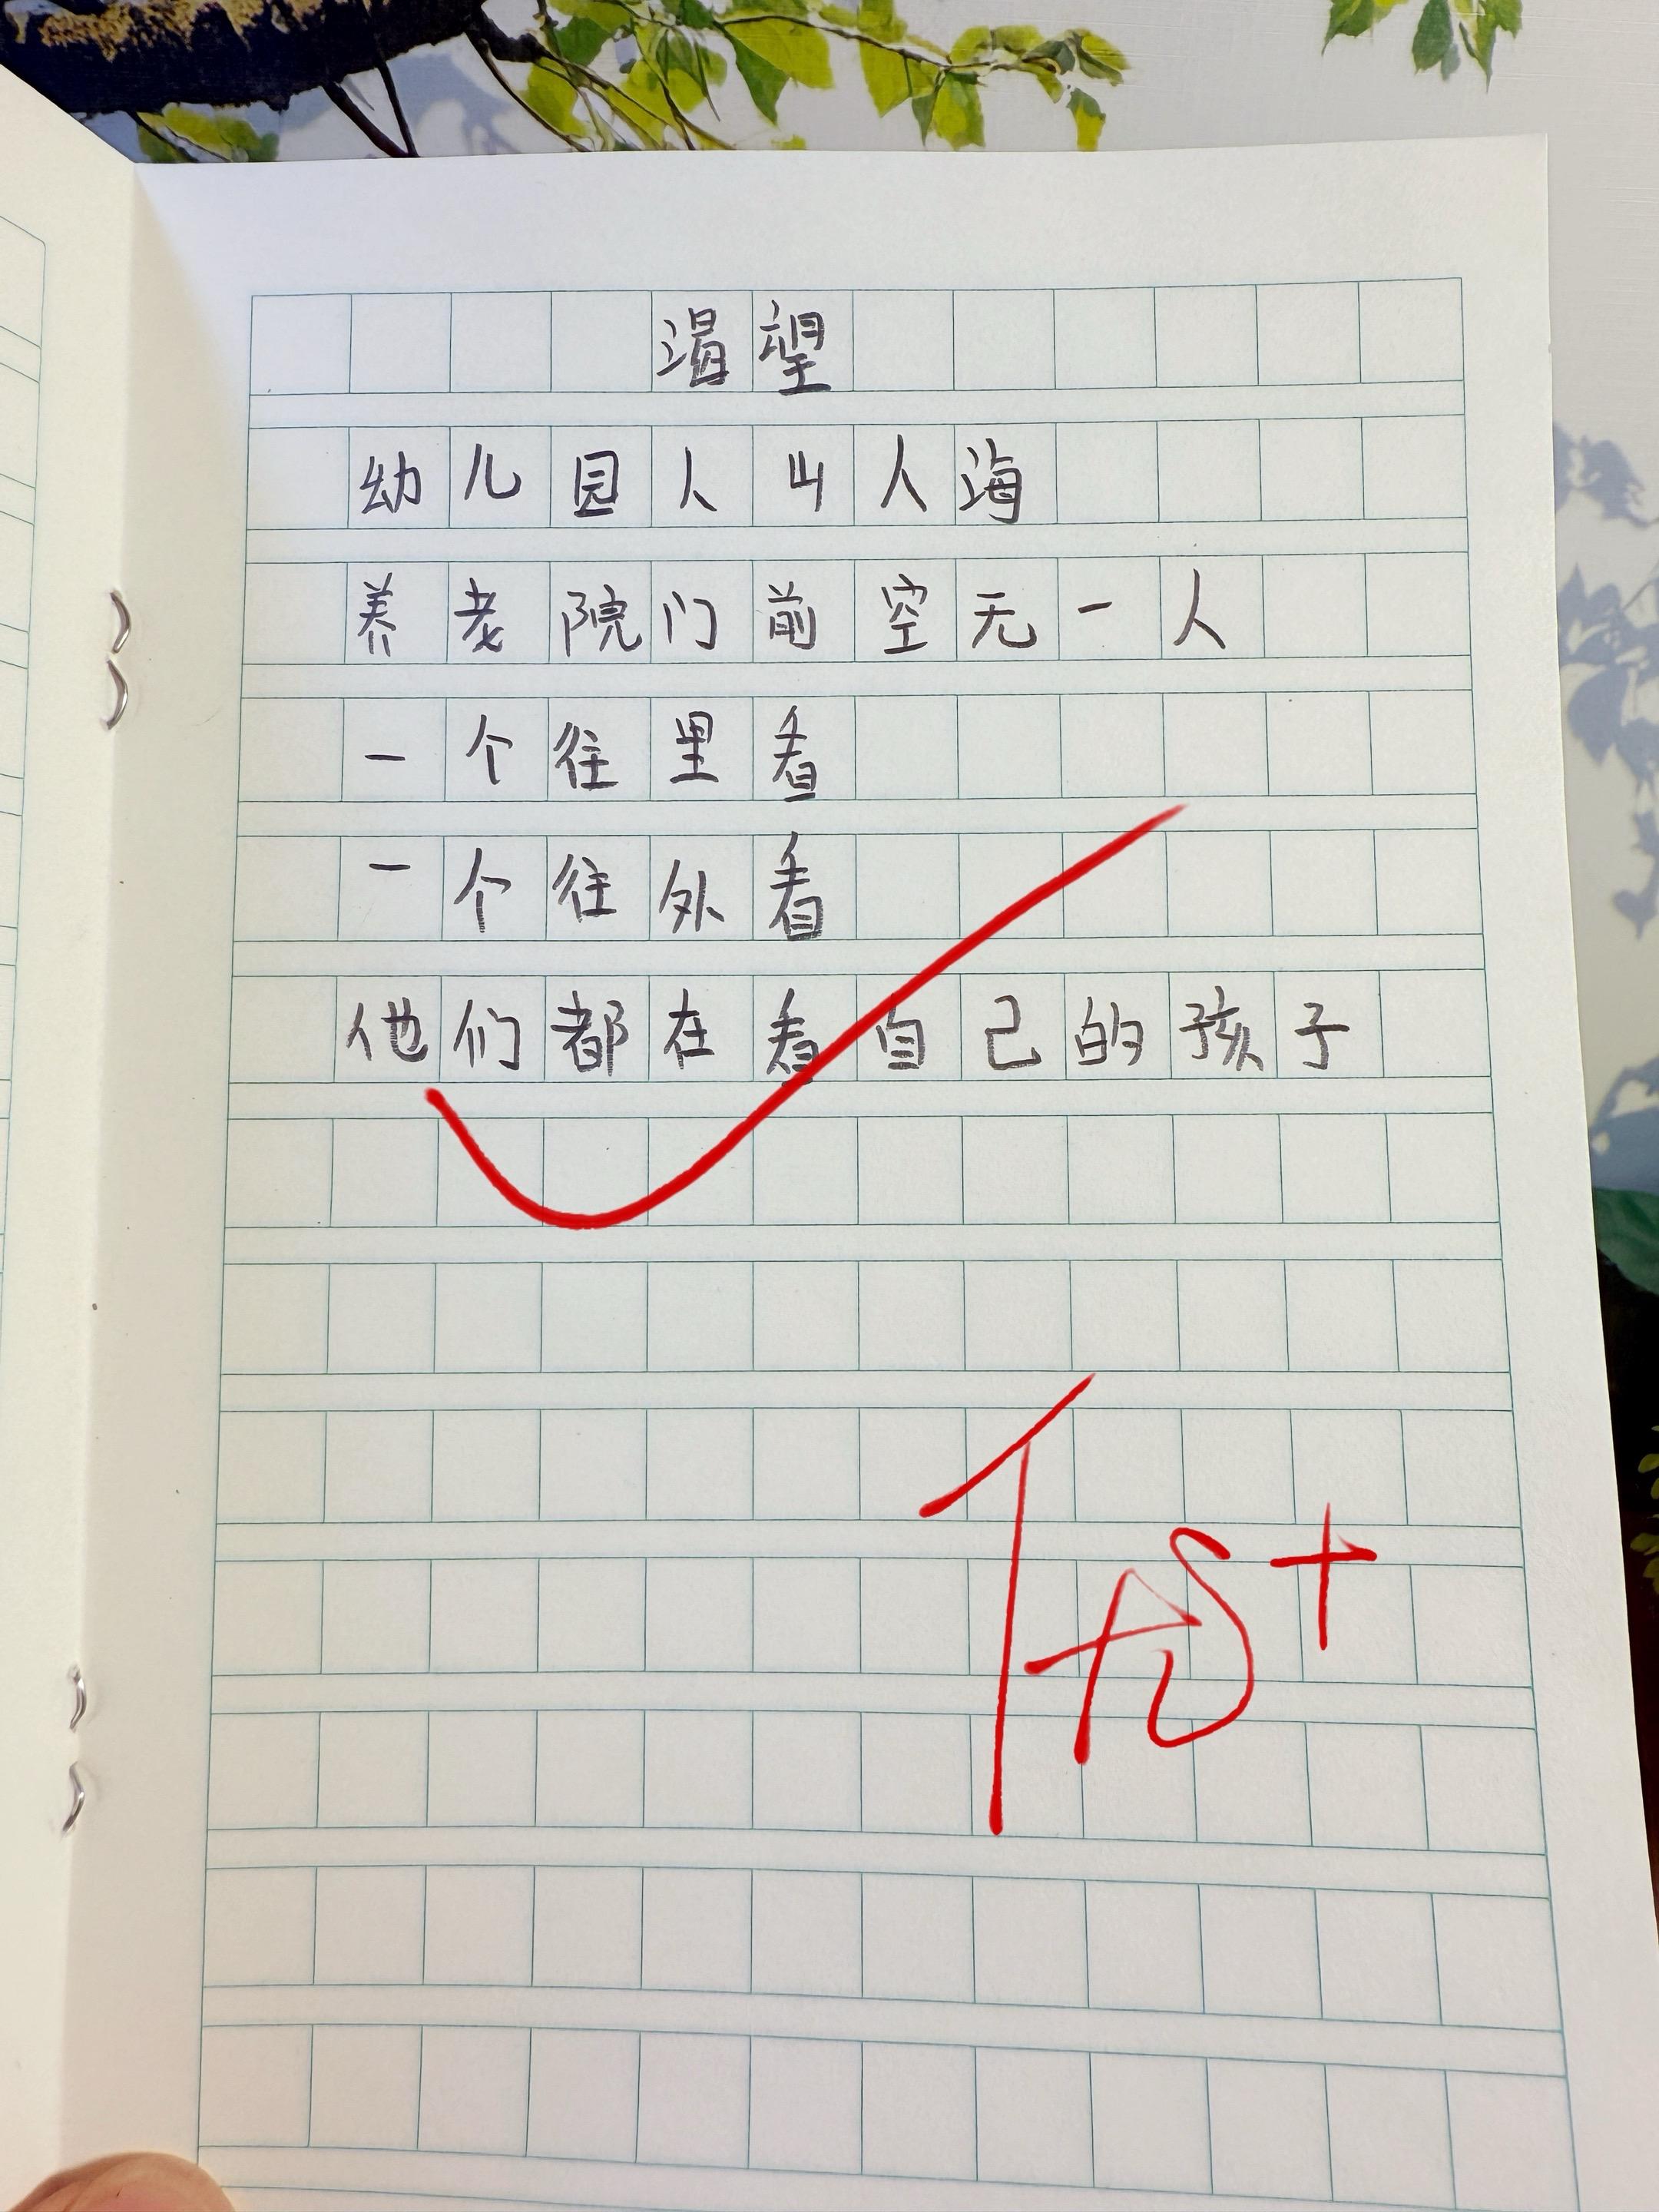 渴望
幼儿园人山人海
养老院门前空无一人
一个往里看
一个往外看
他们都在看自己的孩子
优+